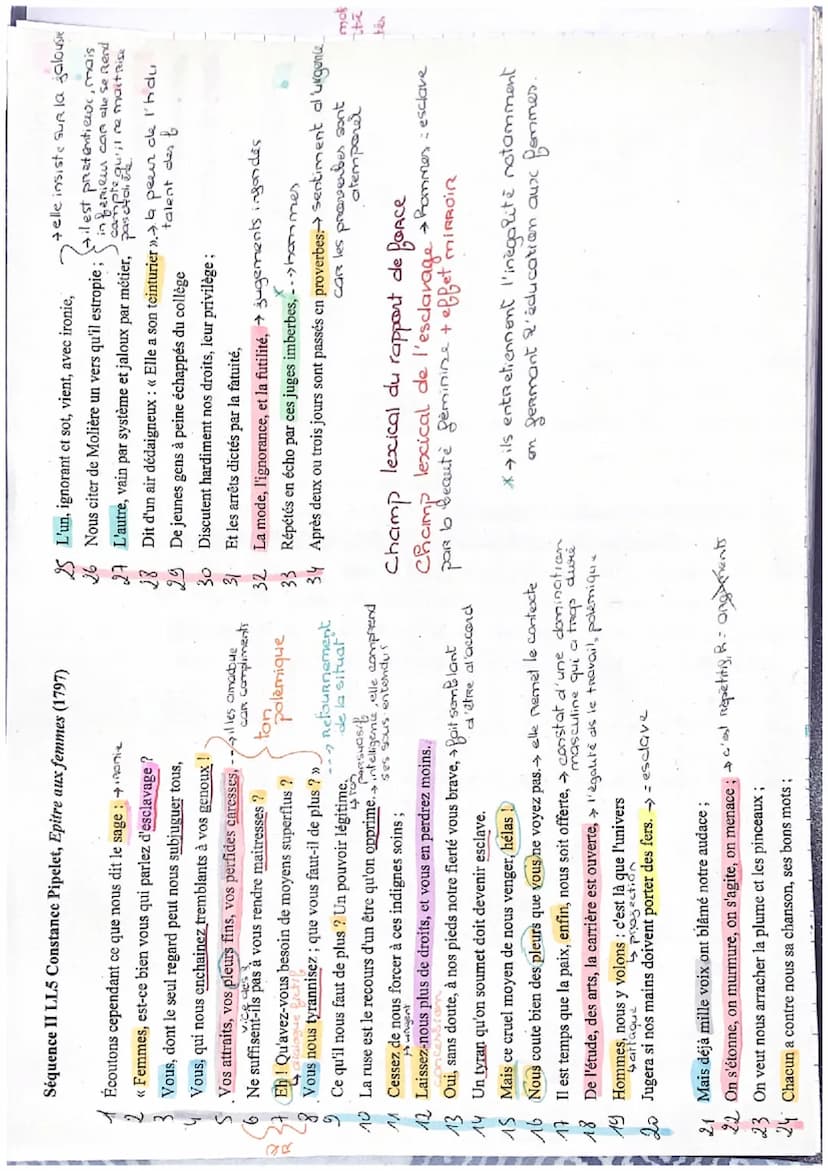 Séquence II LL5 Constance Pipelet, Epitre aux femmes (1797)
1 Écoutons cependant ce que nous dit le sage : → ironie
2 « Femmes, est-ce bien vous qui parlez d'esclavage ?
3 Vous, dont le seul regard peut nous subjuguer tous,
4 Vous, qui nous enchaînez tremblants à vos genoux !
5 Vos attraits, vos pleurs fins, vos perfides caresses, --→ il les amadoue
car compliments
6 Ne suffisent-ils pas à vous rendre maîtresses ?
ton
polémique
7 Eh ! Qu'avez-vous besoin de moyens superflus ?
↳ dialogue fictif
8 Vous nous tyrannisez ; que vous faut-il de plus ? »
---> retournement
de la situat°
9 Ce qu'il nous faut de plus ? Un pouvoir légitime.
↳ ton persuasif
10 La ruse est le recours d'un être qu'on opprime. → intelligence, elle comprend
ses sous entendus
11 Cessez de nous forcer à ces indignes soins ;
12 Laissez-nous plus de droits, et vous en perdrez moins.
concession
13 Oui, sans doute, à nos pieds notre fierté vous brave, → fait semblant
d'être d'accord
14 Un tyran qu'on soumet doit devenir esclave.
15 Mais ce cruel moyen de nous venger, hélas !
16 Nous coute bien des pleurs que vous ne voyez pas. → elle remet le contexte
17 Il est temps que la paix, enfin, nous soit offerte, → constat d'une domination
masculine qui a trop duré
18 De l'étude, des arts, la carrière est ouverte, → l'égalité ds le travail, polémique
19 Hommes, nous y volons : c'est là que l'univers
↳ attaque ↳ projection
20 Jugera si nos mains doivent porter des fers. → = esclave
21 Mais déjà mille voix ont blâmé notre audace ;
22 On s'étonne, on murmure, on s'agite, on menace ; → c'est répétitif, R = arguments
23 On veut nous arracher la plume et les pinceaux ;
24 Chacun a contre nous sa chanson, ses bons mots ;
25 L'un, ignorant et sot, vient, avec ironie, → elle insiste sur la jalousie
26 Nous citer de Molière un vers qu'il estropie ;
→ il est prétentieux, mais
inférieur car elle se rend
compte qu'il ne maitrise
27 L'autre, vain par système et jaloux par métier,
28 Dit d'un air dédaigneux : « Elle a son teinturier ». → la peur de l'h du
talent des f
29 De jeunes gens à peine échappés du collège
30 Discutent hardiment nos droits, leur privilège ;
31 Et les arrêts dictés par la fatuité,
32 La mode, l'ignorance, et la futilité, → jugements infondés
33 Répétés en écho par ces juges imberbes, --→ hommes
34 Après deux ou trois jours sont passés en proverbes. → sentiment d'urgence
car les proverbes sont
atemporels
Champ lexical du rapport de force
Champ lexical de l'esclavage → hommes : esclave
par la beauté féminine + effet mirroir
* → ils entretiennent l'inégalité notamment
en fermant l'éducation aux femmes.